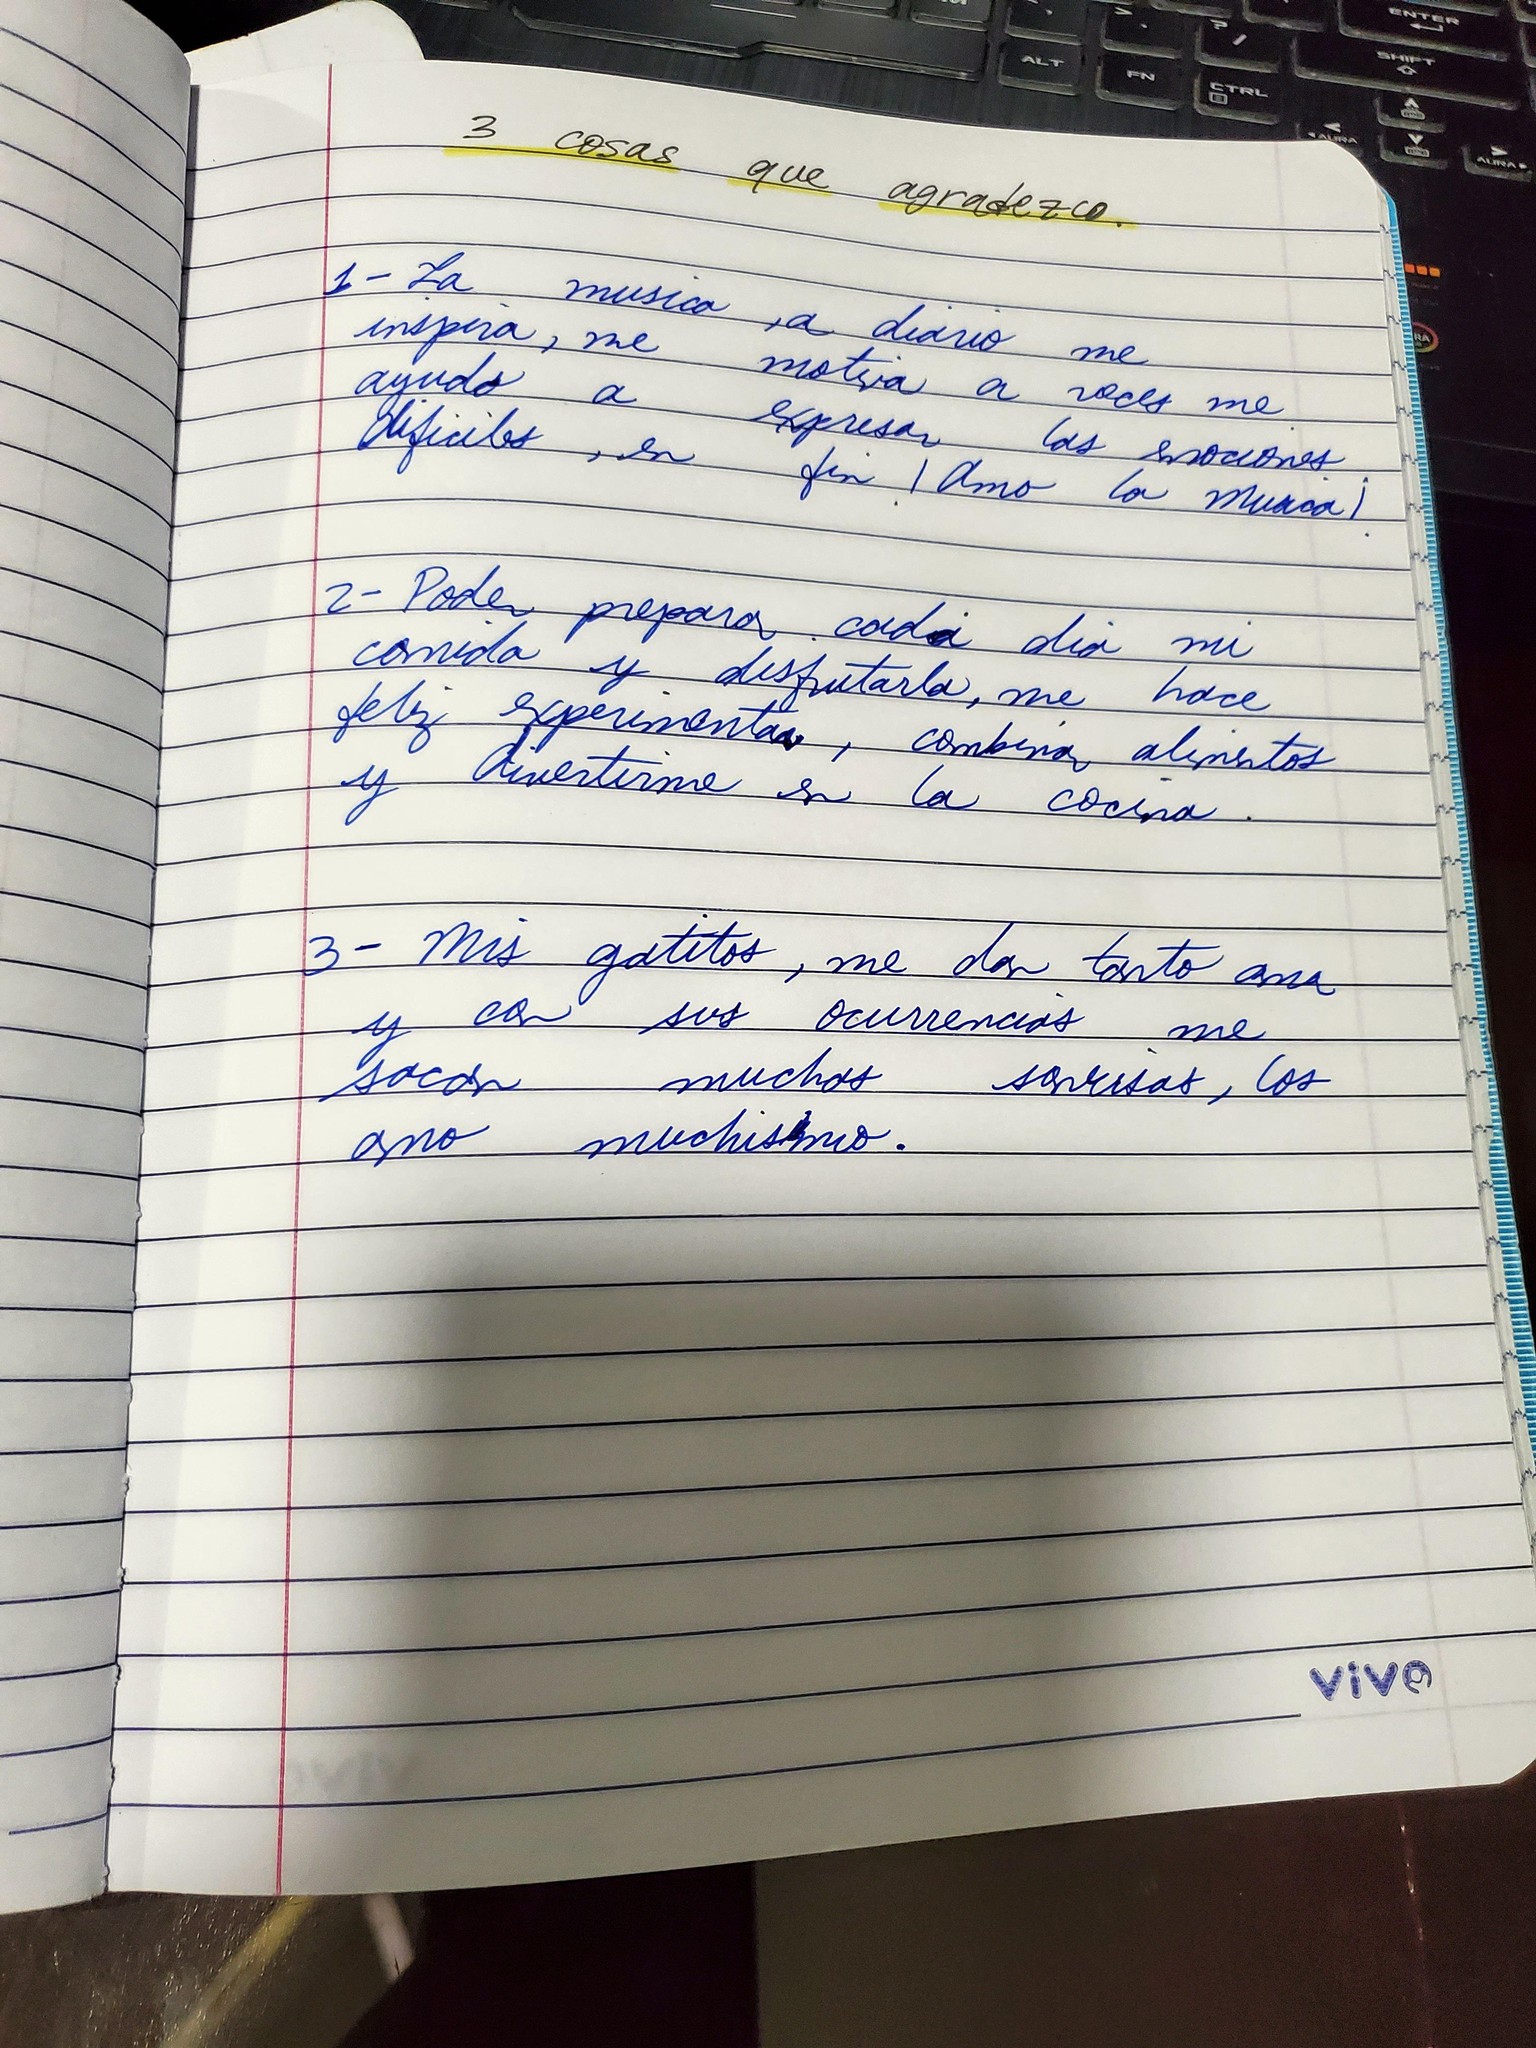 3 cosas que agradezco.
1- La musica, a diario me
inspira, me motiva a veces me
ayuda a expresar las emociones
dificiles, en fin ! Amo la musica ¡
2- Poder preparar cada dia mi
comida y disfrutarla, me hace
feliz experimentar, combinar alimentos
y divertirme en la cocina.
3- Mis gatitos, me dan tanto amor
y con sus ocurrencias me
sacan muchas sonrisas, los
amo muchisimo.
vivo
ALT
FN
CTRL
ENTER
SHIFT
AURA
AURA